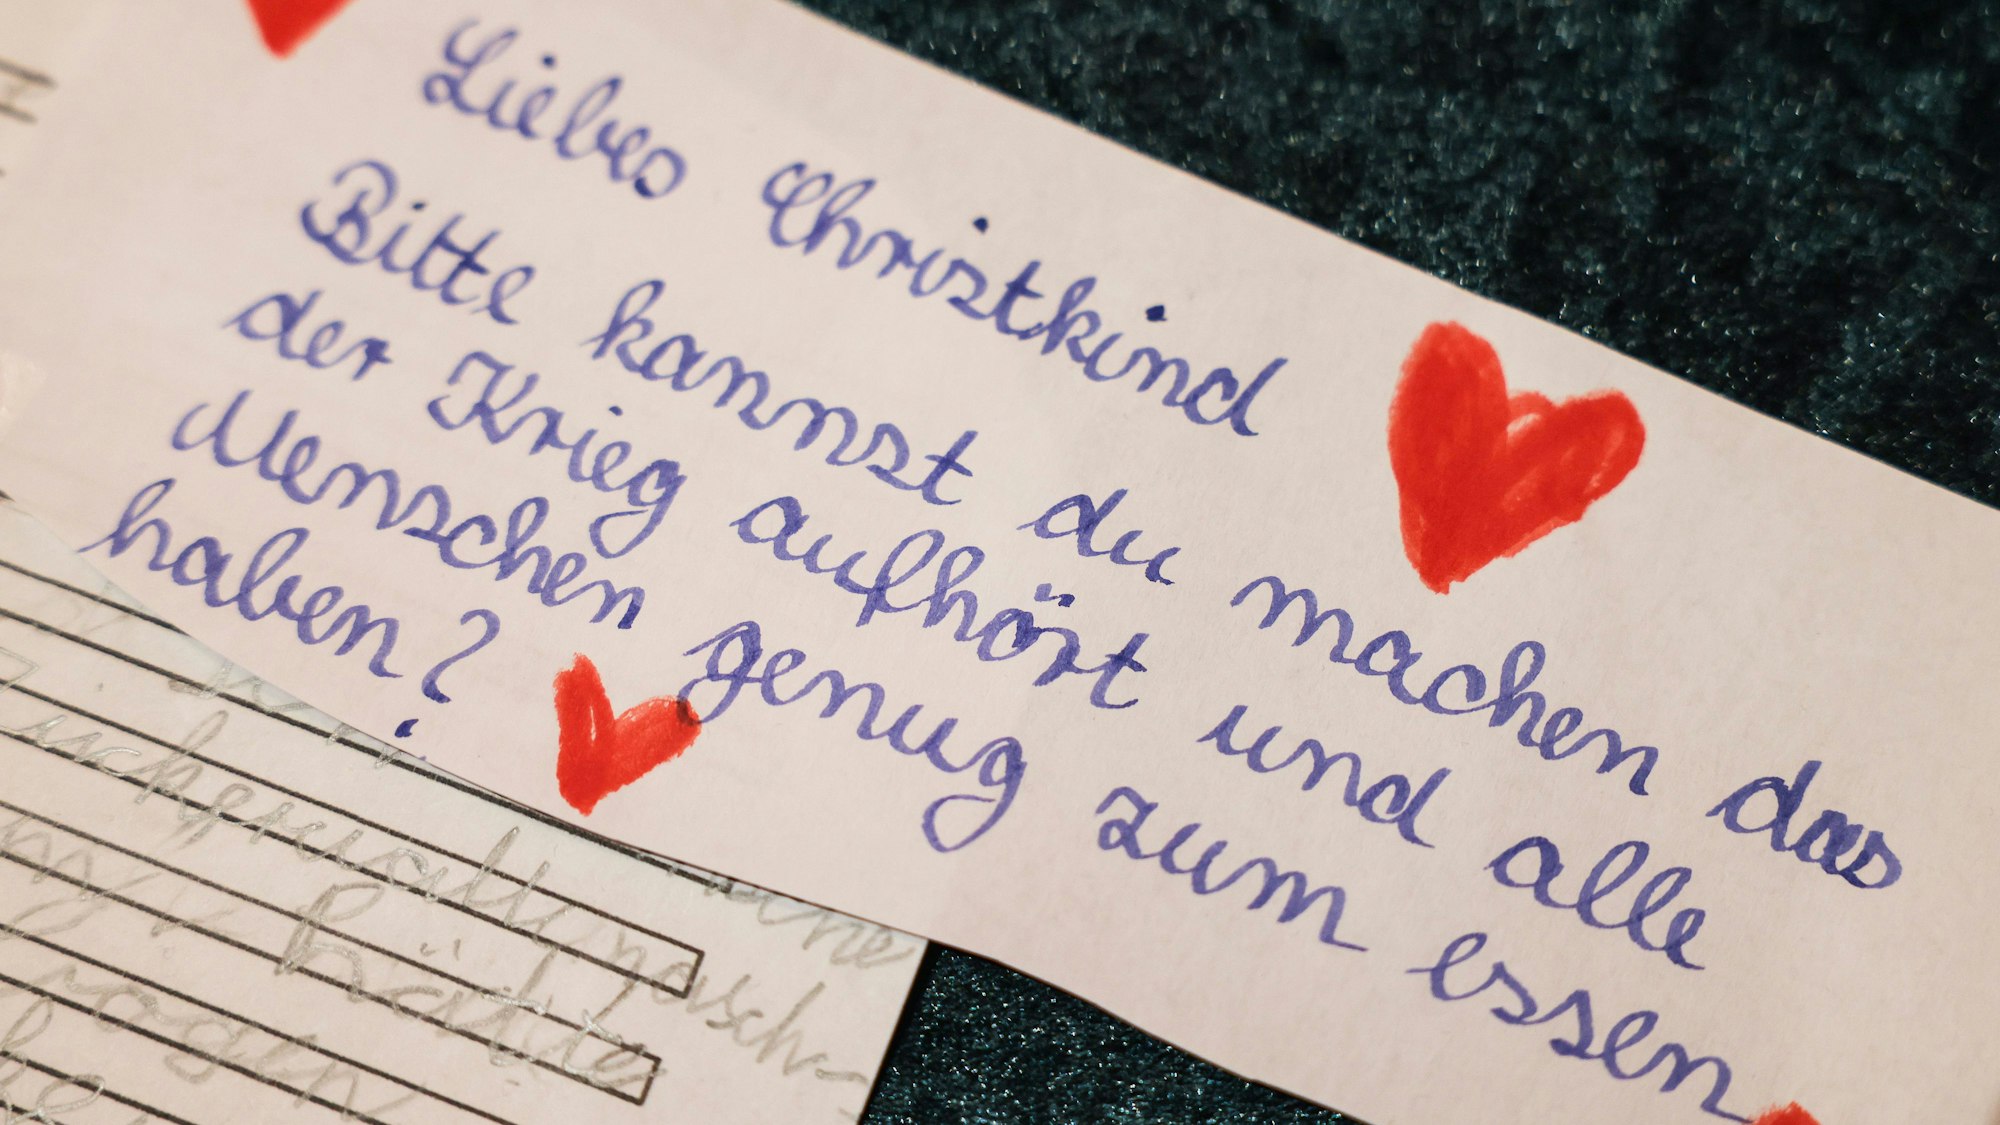 Liebes Christkind
Bitte kannst du machen das
der Krieg aufhört und alle
Menschen genug zum essen
haben?
hätte